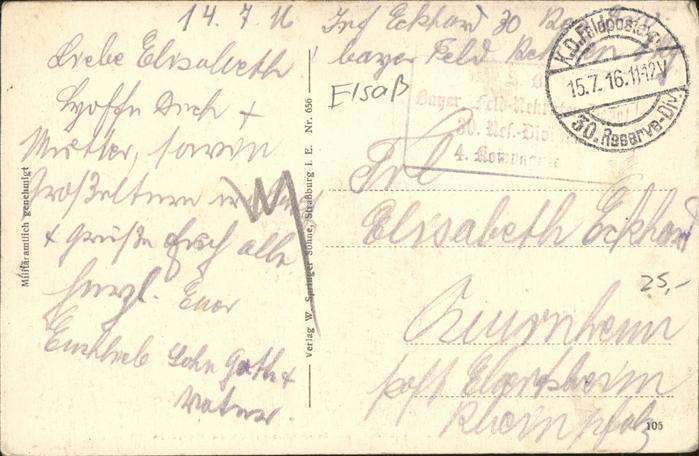 14.7.16
Liebe Elisabeth
Hoffe Dich +
Mutter, sowie
Großeltern
+ grüße Euch alle
herzl. Euer
Sohn Gatte +
Vater.
Militäramtlich genehmigt
Verlag W. Springer Söhne, Straßburg i. E. Nr. 656
Inf Eckhard 30
bayer Feld
Elsaß
Bayer. Feld-
30. Res.-Div
4.
K.D. Feldpost
15.7.16.11-12V
30. Reserve-Div.
Frl
Elisabeth Eckhard
25,-
post
Rheinpfalz
105